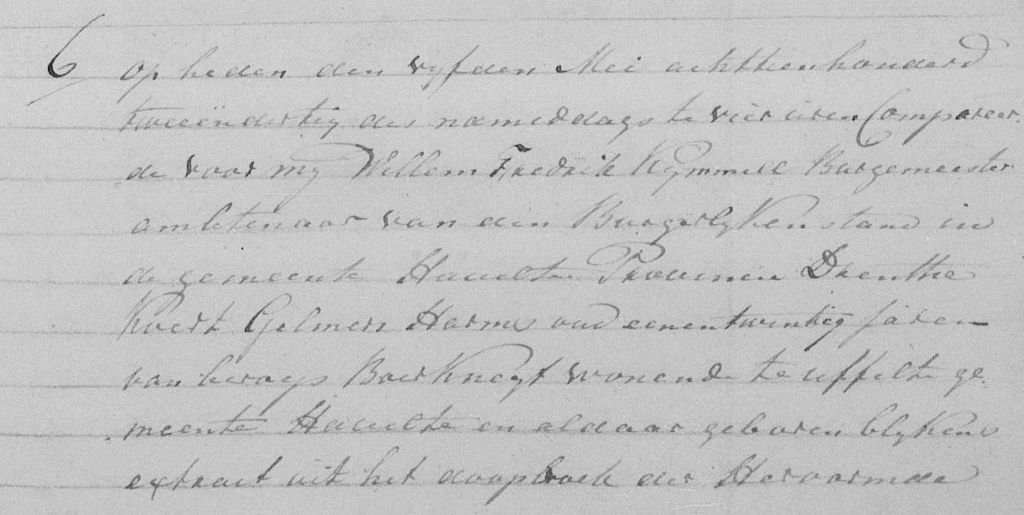 6 op heden den vyfden Mei achttienhonderd
tweeëndertig des nameddags te vier uren Compareer-
de voor my Willem Fredrik Kymmell Burgemeester
ambtenaar van den Burgerlyken stand in
de gemeente Havelte Provincie Drenthe
Koert Gelmers Harms oud eenentwintig jaren
van beroep Boerknegt wonende te uffelte ge-
meente Havelte en aldaar geboren blykens
extract uit het doopboek der Hervormde